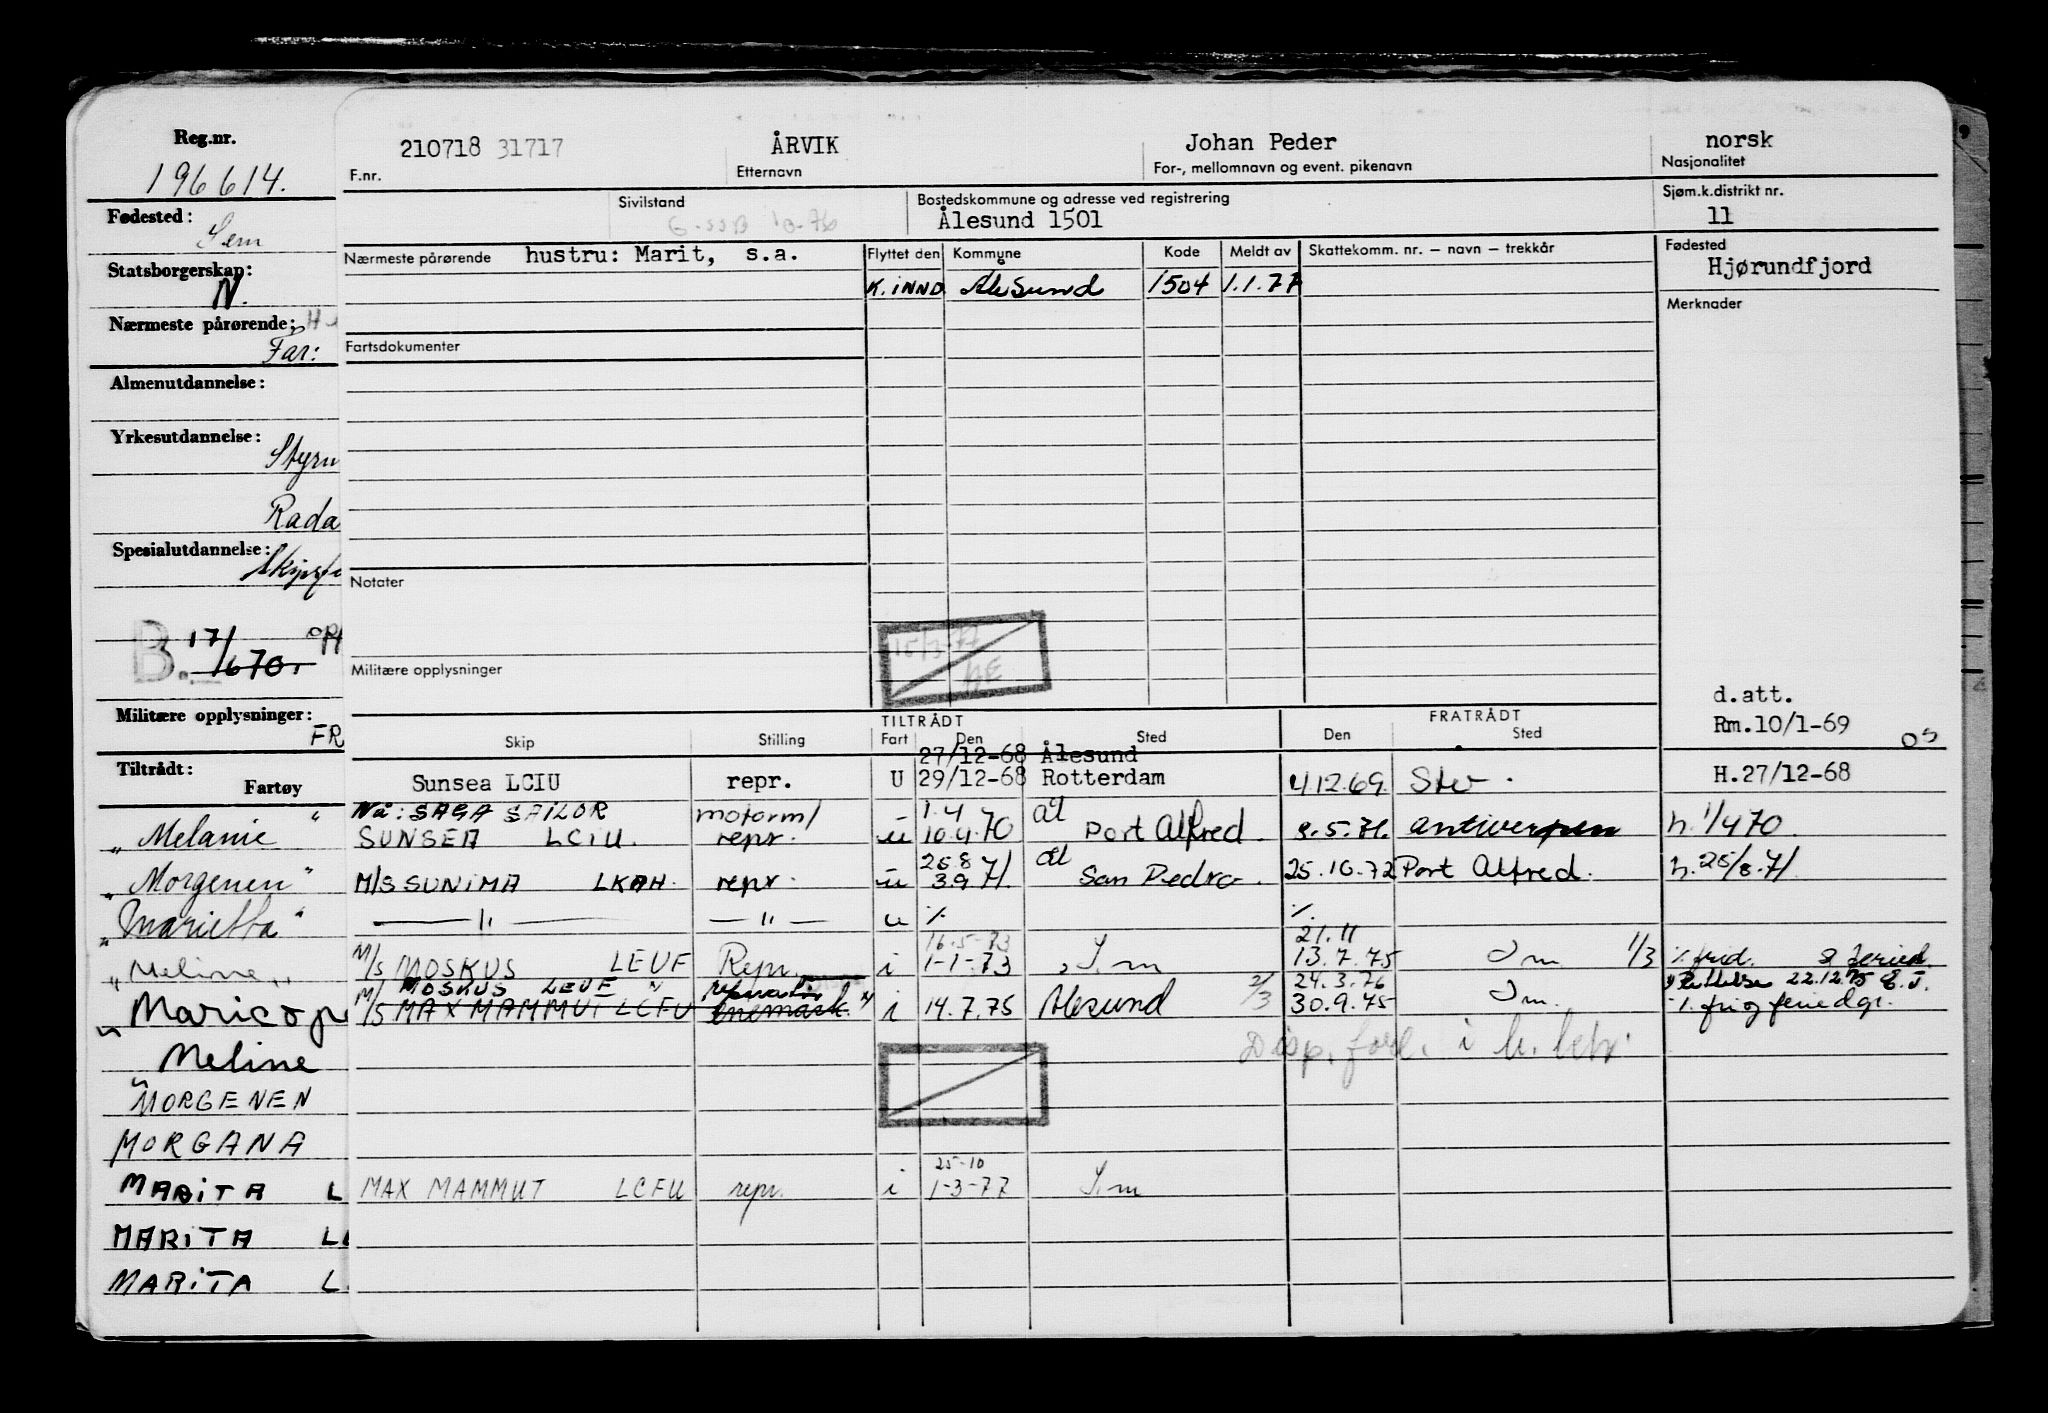 Reg.nr.
196614.
Fødested:
Sem
Statsborgerskap:
N.
Nærmeste pårørende:
Far:
Almenutdannelse:
Yrkesutdannelse:
Styrm
Rada
Spesialutdannelse:
Skipsfø
B. 17/
1670.
Militære opplysninger:
FR
Tiltrådt:
Fartøy
" Melanie "
" Morgenen "
" Marietta "
" Meline "
" Maricope
" Meline
" MORGENEN
MORGANA
MARITA L
MARITA LE
MARITA L
210718 31717 ÅRVIK Johan Peder norsk
F.nr. Etternavn For-, mellomnavn og event. pikenavn Nasjonalitet
Sivilstand Bostedskommune og adresse ved registrering Sjøm.k.distrikt nr.
G-SSB 10-76 Ålesund 1501 11
Nærmeste pårørende hustru: Marit, s.a. Flyttet den Kommune Kode Meldt av Skattekomm. nr. — navn — trekkår Fødested
Hjørundfjord
K. INND. Ålesund 1504 1.1.77
Merknader
Fartsdokumenter
Notater
15/3-77
Militære opplysninger
d.att.
Rm.10/1-69 os
TILTRÅDT FRATRÅDT
Skip Stilling Fart Den Sted Den Sted
27/12-68 Ålesund
Sunsea LCIU repr. U 29/12-68 Rotterdam 4.12.69. Stv. H.27/12-68
Nå: SAGA SAILOR motorm/ 1.4 ål
SUNSEA LCIU. repr. u 10.4.70 Port Alfred. 8.5.71. Antwerpen h. 1/4 70.
25.8 ål
M/S SUNIMA LKAH. repr. u 3.9 71. San Pedro. 25.10.72 Port Alfred. h. 25/8.71.
— " — — " — u % %
16.5-73 21.11
M/S MOSKUS LEUF Repr. i 1-1-73 I.m 13.7.75 Im 1/3 % frid. & feried.
M/ MOSKUS LEUF " reparatør 24.3.76 22.12.75
/S MAX MAMMUT LCFU i 14.7.75 Ålesund 2/3 30.9.75 Im. % fri og feriedg.
Disp. ford. i h. betr.
25-10
MAX MAMMUT LCFU repr. i 1-3-77 I.m